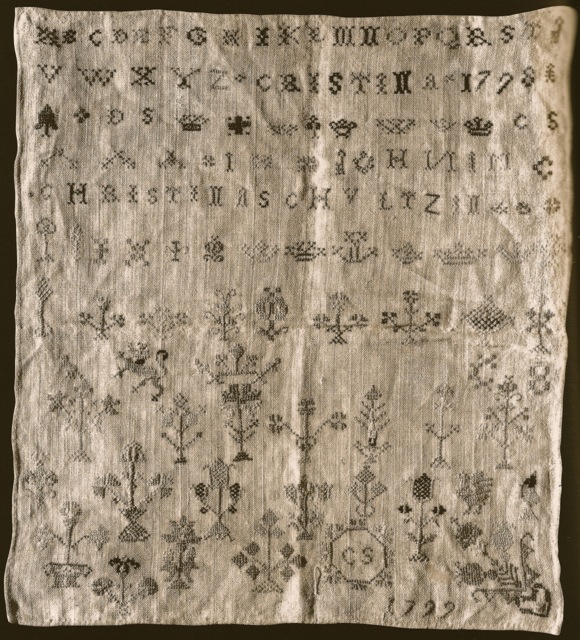 A B C D E F G H I K L M N O P Q R S T
V W X Y Z C RISTINA 1798
D S C S
I H
CHRISTINA SCHVLTZIN
CS
1799